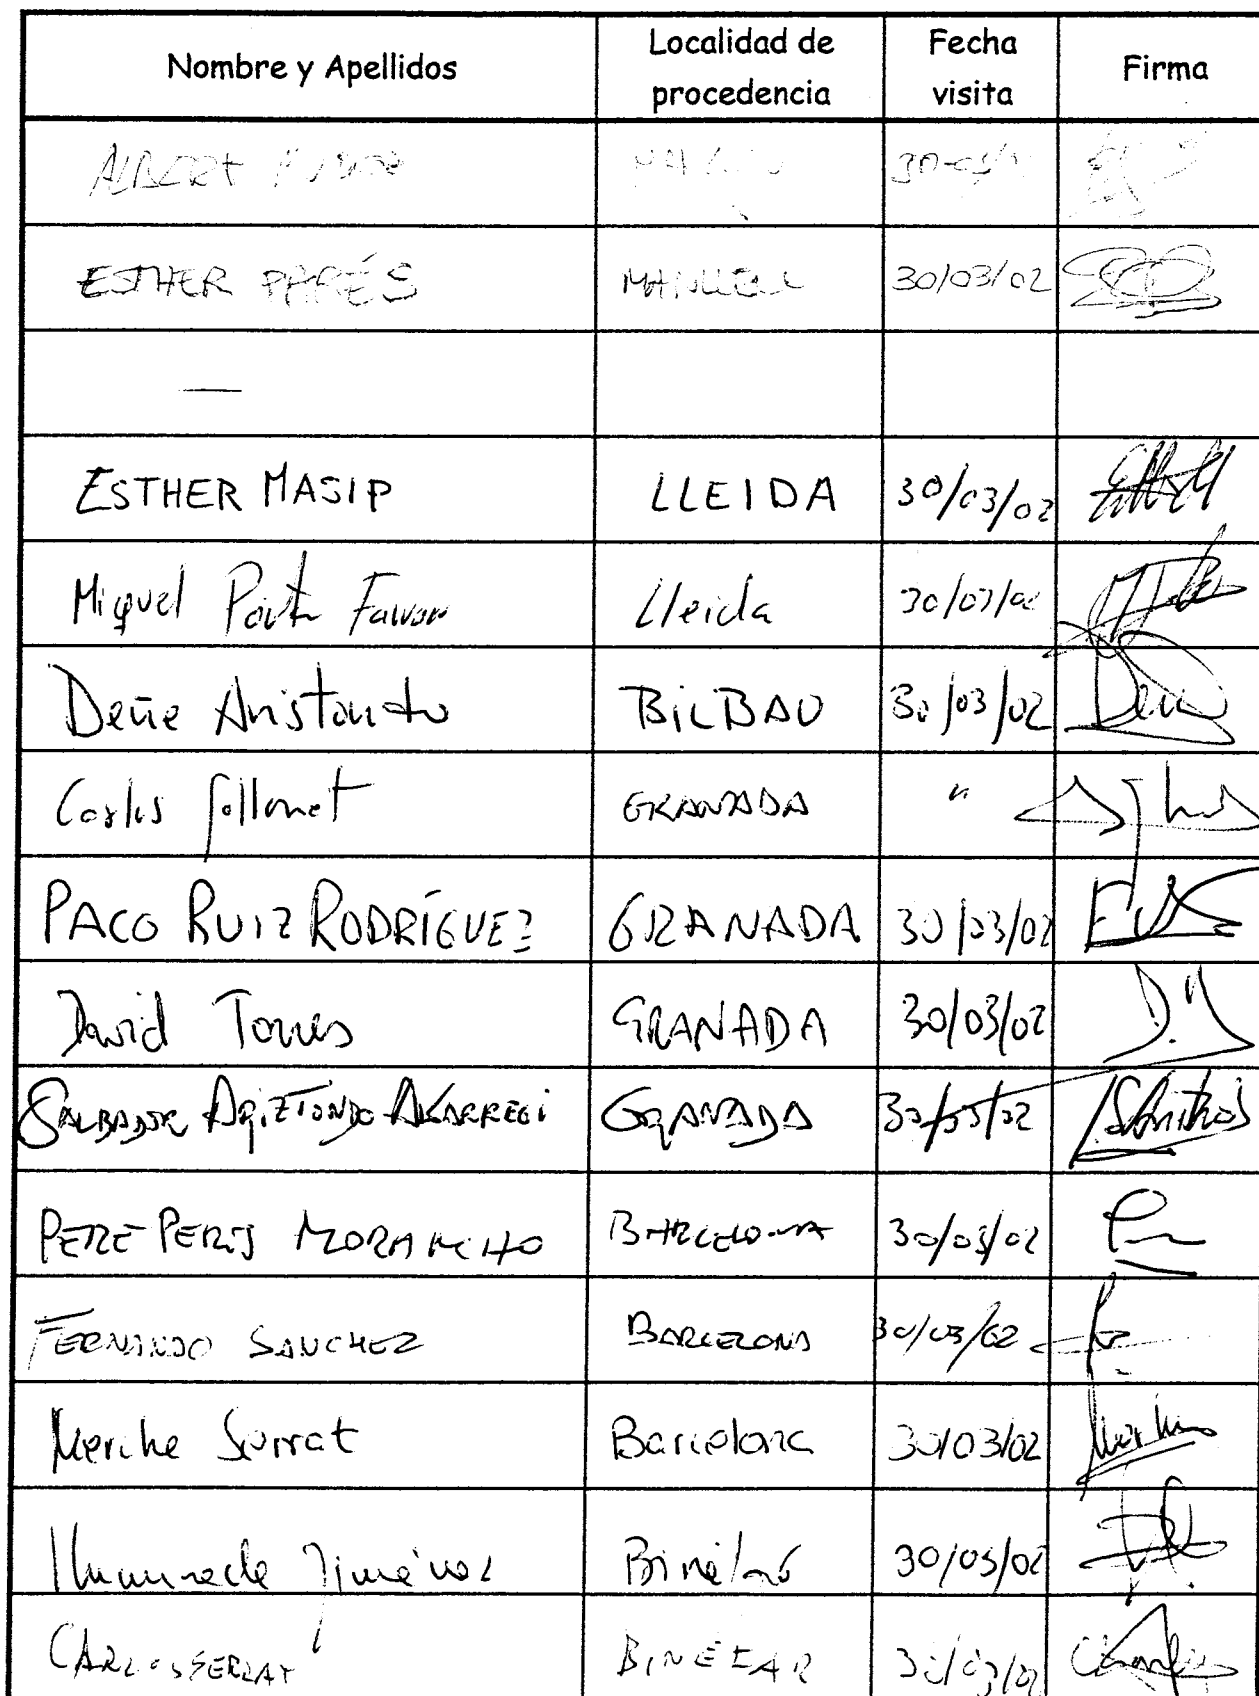 Nombre y Apellidos Localidad de procedencia Fecha visita Firma
ALBERT
ESTHER PARÉS MANLLEU 30/03/02
—
ESTHER MASIP LLEIDA 30/03/02
Miquel Porta Lleida 30/03/02
Deñe Aristondo BILBAO 30/03/02
Carlos Gollonet GRANADA "
PACO RUIZ RODRÍGUEZ GRANADA 30/03/02
David Torres GRANADA 30/03/02
SALBADOR GRANADA 30/03/02
PERE PERIS MORANCHO BARCELONA 30/03/02
FERNANDO SANCHEZ BARCELONA 30/03/02
Merche Serrat Barcelona 30/03/02
Inmaculada Jiménez Binéfar 30/03/02
CARLOS SERRAT BINÉFAR 30/03/02